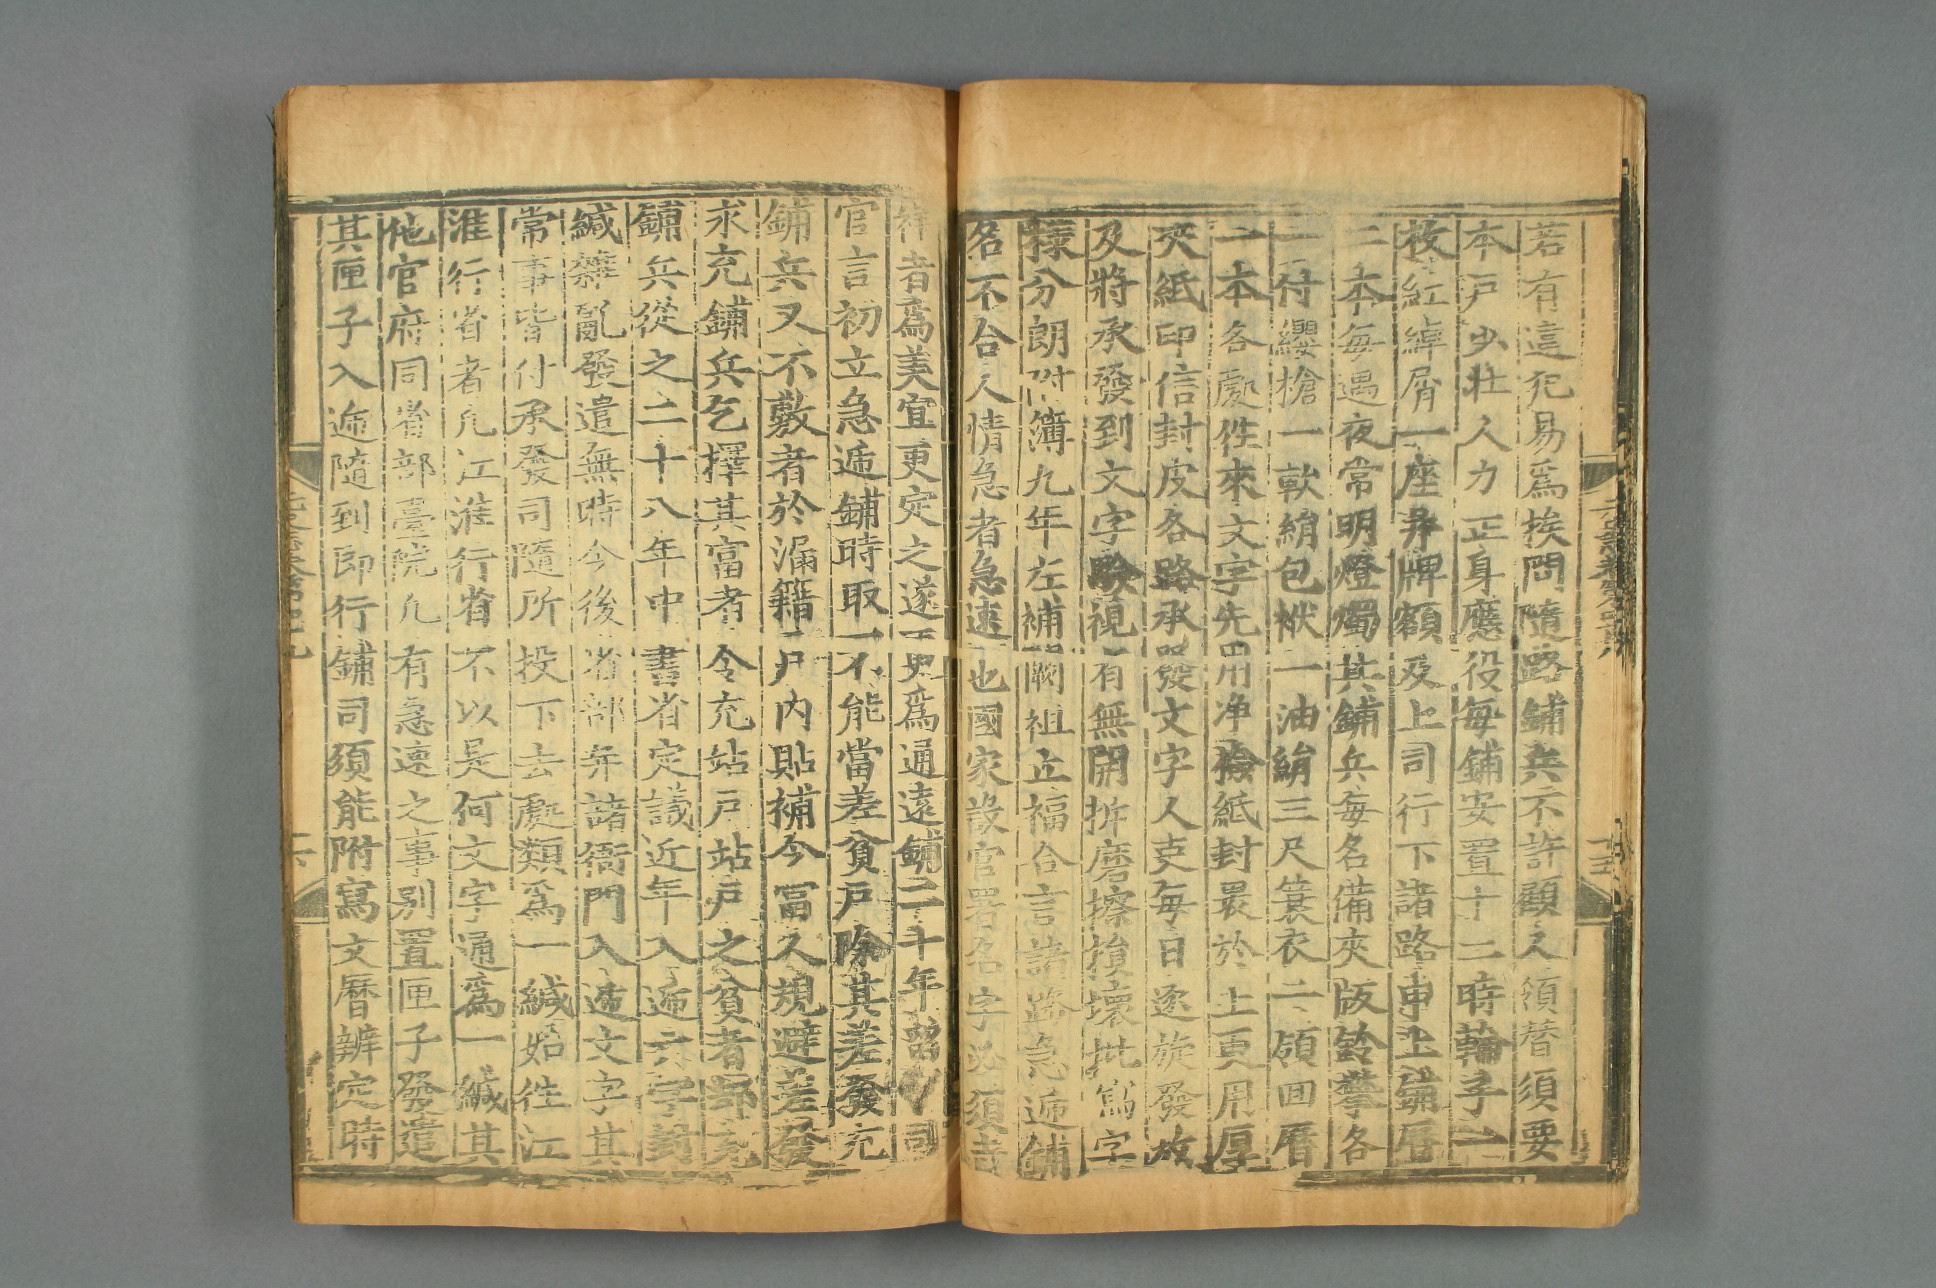 若有這犯易爲挨問隨路鋪兵不許顧人領替須要
本戶少壯人力正身應役每鋪安置十二時輪子一
枚紅綽屑一座并牌額及上司行下諸路申上鋪曆
二本每遇夜常明燈燭其鋪兵每名備夾版鈴攀各
一付纓槍一軟絹包袱一油絹三尺簑衣一領回曆
一本各處徃來文字先用净檢紙封裹於上更用厚
夾紙印信封皮各路承發文字人吏每日逐旋發放
及將承發到文字驗視有無開拆磨擦損壞批寫字
樣分朗附簿九年左補闕祖立福合言諸路急遞鋪
名不合人情急者急速也國家設官署名字必須吉
祥者爲美宜更定之遂更爲通遠鋪二十年留守司
官言初立急遞鋪時取不能當差貧戶除其差發充
鋪兵又不敷者於漏籍戶內貼補今富人規避差發
求充鋪兵乞擇其富者令充站戶站戶之貧者却充
鋪兵從之二十八年中書省定議近年入遞文字封
緘雜亂發遣無時今後省部并諸衙門入遞文字其
常事皆付承發司隨所投下去處類爲一緘如徃江
淮行省者凡江淮行省不以是何文字通爲一緘其
他官府同省部臺院凡有急速之事別置匣子發遣
其匣子入遞隨到即行鋪司須能附寫文曆辨定時